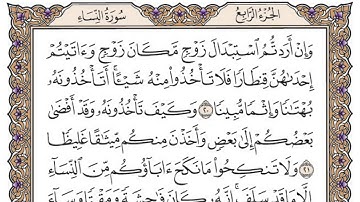 سُورَةُ النِّسَاءِ الجُزءُ الرَّابِعُ
وَإِنْ أَرَدتُّمُ اسْتِبْدَالَ زَوْجٍ مَّكَانَ زَوْجٍ وَءَاتَيْتُمْ
إِحْدَىٰهُنَّ قِنطَارًا فَلَا تَأْخُذُوا۟ مِنْهُ شَيْـًٔا ۚ أَتَأْخُذُونَهُۥ
بُهْتَٰنًا وَإِثْمًا مُّبِينًا ٢٠ وَكَيْفَ تَأْخُذُونَهُۥ وَقَدْ أَفْضَىٰ
بَعْضُكُمْ إِلَىٰ بَعْضٍ وَأَخَذْنَ مِنكُم مِّيثَٰقًا غَلِيظًا
٢١ وَلَا تَنكِحُوا۟ مَا نَكَحَ ءَابَآؤُكُم مِّنَ النِّسَآءِ
إِلَّا مَا قَدْ سَلَفَ ۚ إِنَّهُۥ كَانَ فَٰحِشَةً وَمَقْتًا وَسَآءَ